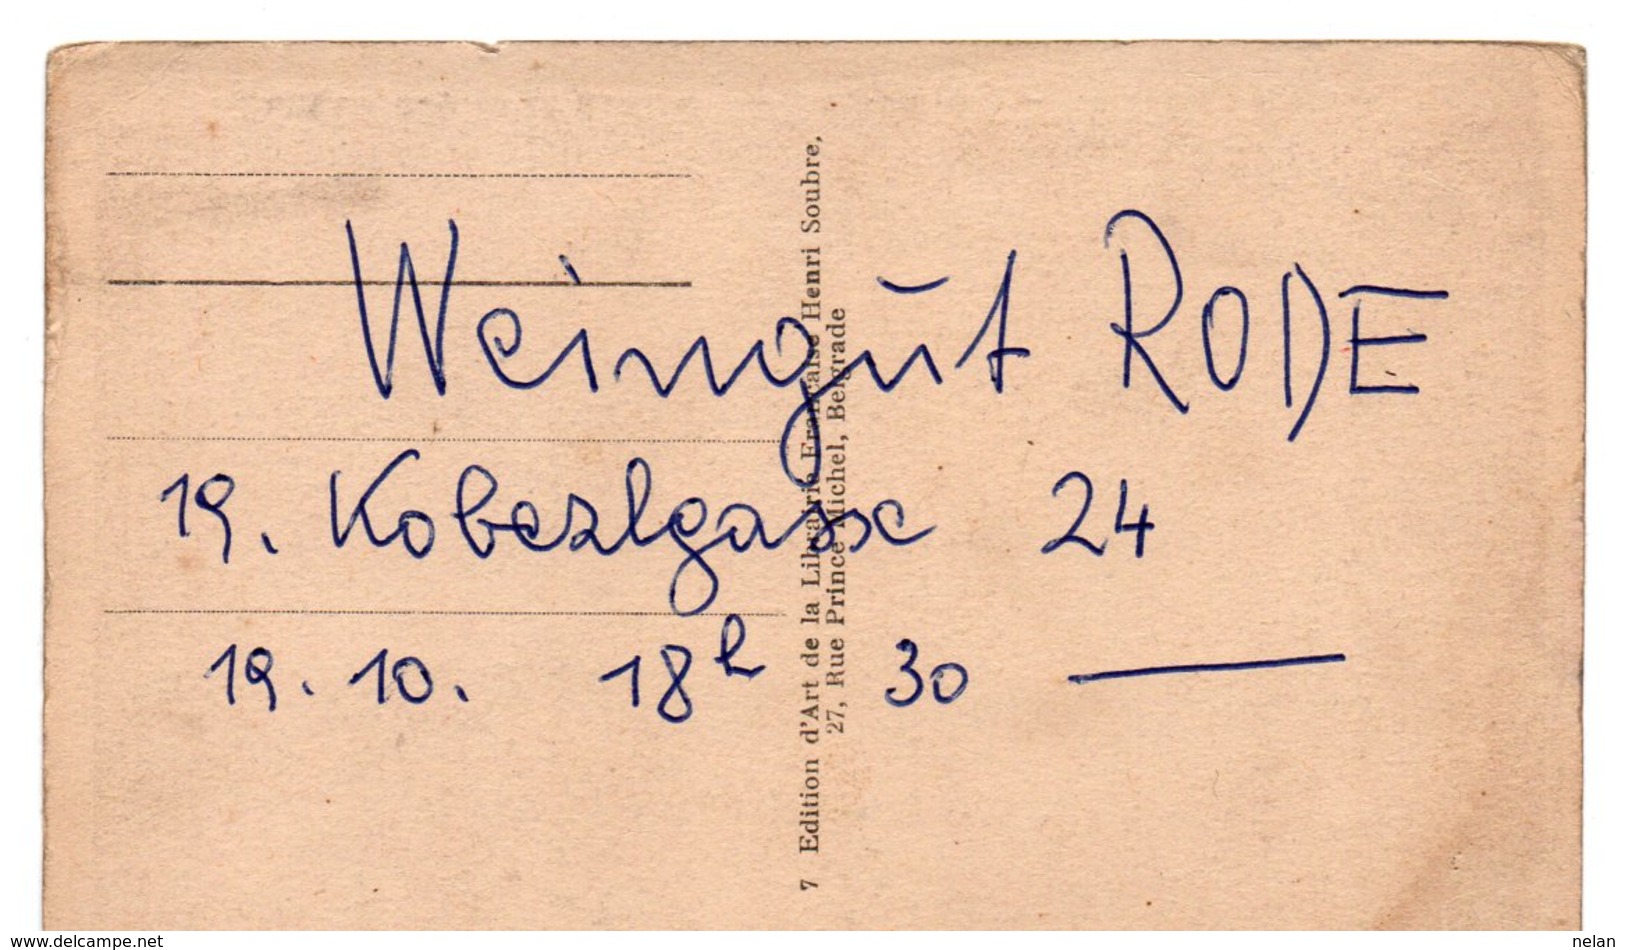 Weingut RODE
19. Kobezlgasse 24
19. 10. 18h 30 —
7 Edition d'Art de la Librairie Française Henri Soubre,
27, Rue Prince Michel, Belgrade
www.delcampe.net
nelan